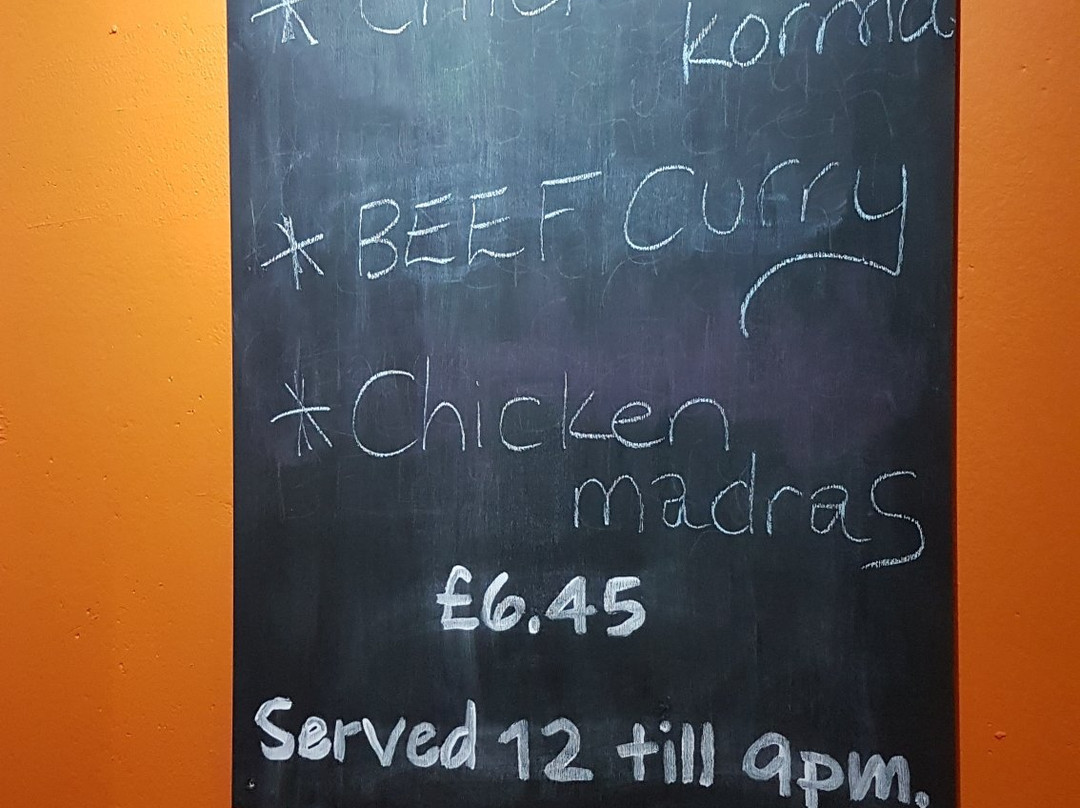 * Chic
korma
* BEEF Curry
* Chicken
madras
£6.45
Served 12 till 9pm.